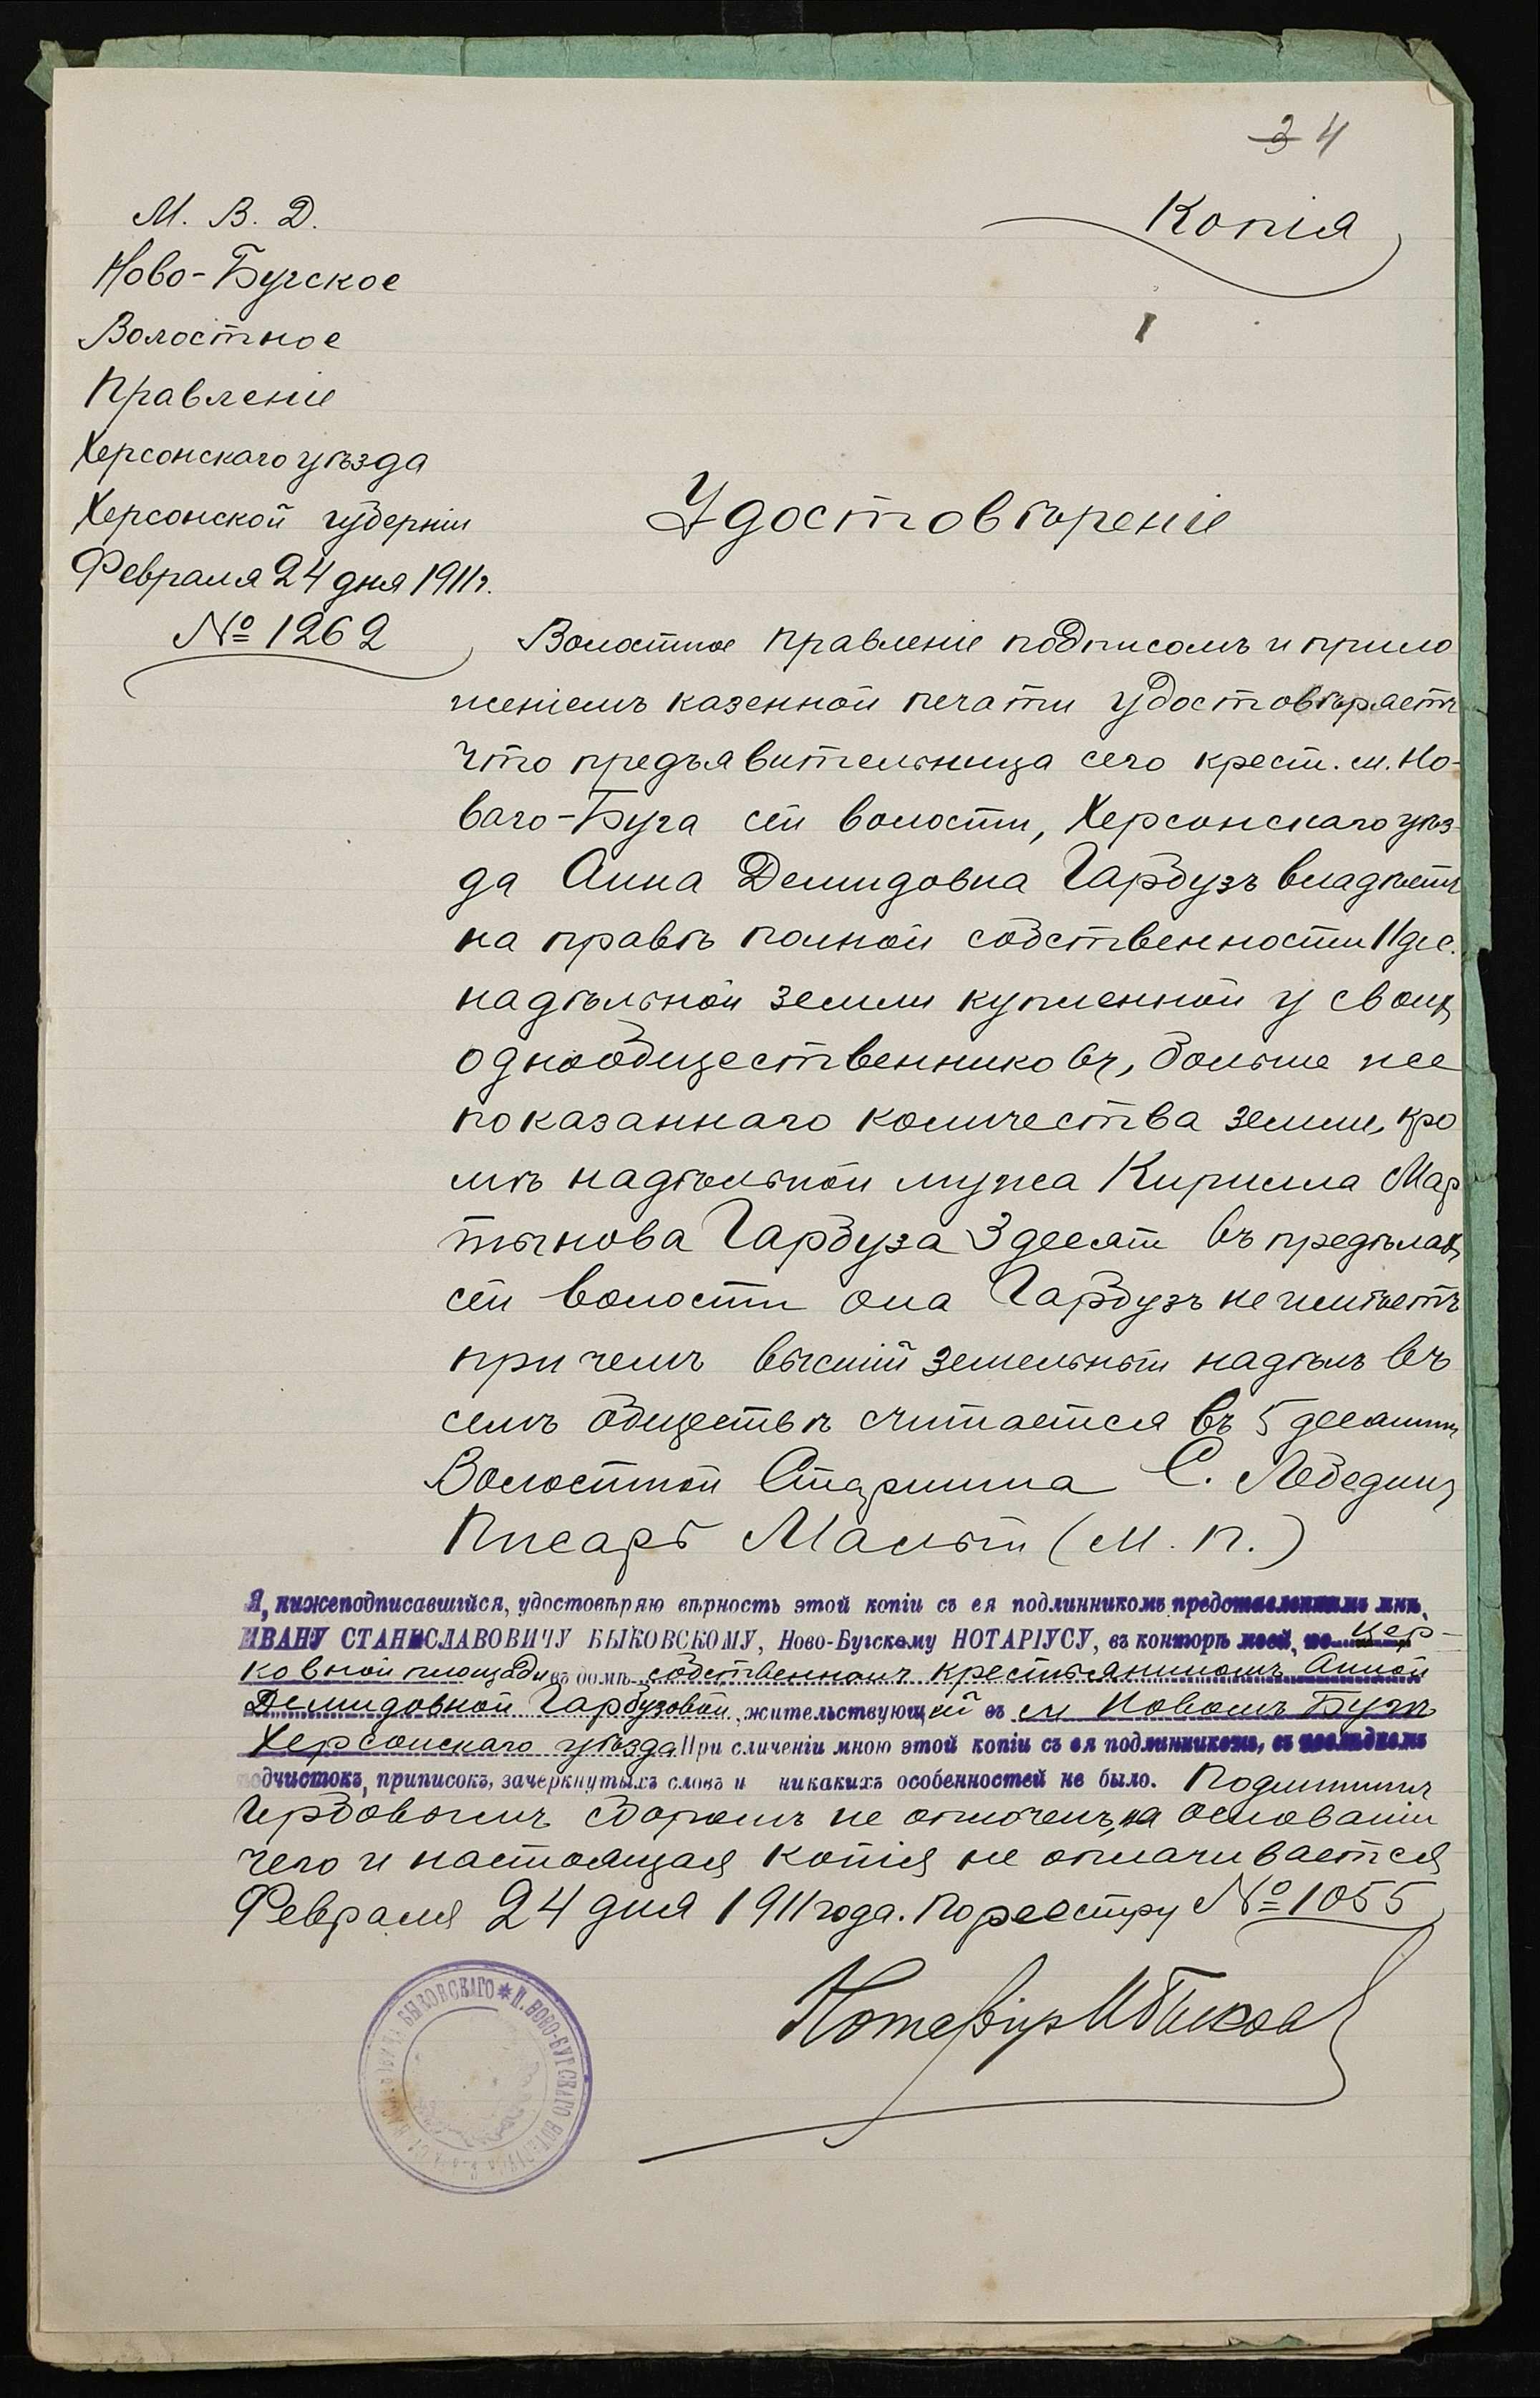 3 4
Копія
М. В. Д.
Ново-Бугское
Волостное
Правленіе
Херсонскаго уѣзда
Херсонской губерніи
Февраля 24 дня 1911 г.
№ 1262
Удостовѣреніе
Волостное Правленіе подписомъ и прило
женіемъ казенной печати удостовѣряетъ
что предъявительница сего крест. м. Но-
ваго-Буга сей волости, Херсонскаго уѣз-
да Анна Демидовна Гарбузъ владѣетъ
на правѣ полной собственности 11 дес.
надѣльной земли купленной у своихъ
однообщественниковъ, больше же
показаннаго количества земли, кро
мѣ надѣльной мужа Кирилла Мар
тынова Гарбуза 3 десят въ предѣлахъ
сей волости она Гарбузъ не имѣетъ
при чемъ высшій земельный надѣлъ въ
семъ обществѣ считается въ 5 десятин
Волостной Старшина С. Лебедин
Писарь Малый (М. П.)
Я, нижеподписавшійся, удостовѣряю вѣрность этой копіи съ ея подлинникомъ представленнымъ мнѣ,
ИВАНУ СТАНИСЛАВОВИЧУ БЫКОВСКОМУ, Ново-Бугскому НОТАРІУСУ, въ конторѣ моей, по Цер-
ковной площади въ домѣ собственномъ крестьяниномъ Анной
Демидовной Гарбузовой, жительствующей въ м Новомъ Бугѣ
Херсонскаго уѣзда При сличеніи мною этой копіи съ ея подлинникомъ, въ послѣднемъ
подчистокъ, приписокъ, зачеркнутыхъ словъ и никакихъ особенностей не было. Подлинникъ
гербовымъ сборомъ не оплоченъ, на основаніи
чего и настоящая копія не оплачивается
Февраля 24 дня 1911 года. По реестру № 1055
Нотаріус И Быков
БЫКОВСКАГО * Н. НОВО-БУГСКАГО НОТАРІУСА